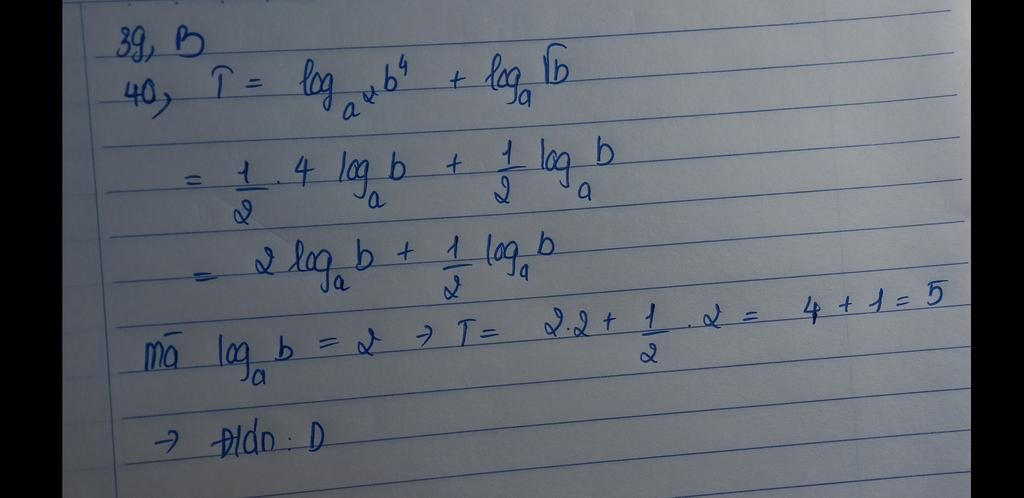 39, B
40, T = log_{a^2} b^4 + log_a √b
= 1/2 . 4 log_a b + 1/2 log_a b
= 2 log_a b + 1/2 log_a b
mà log_a b = 2 → T = 2.2 + 1/2 . 2 = 4 + 1 = 5
→ Đ/án : D